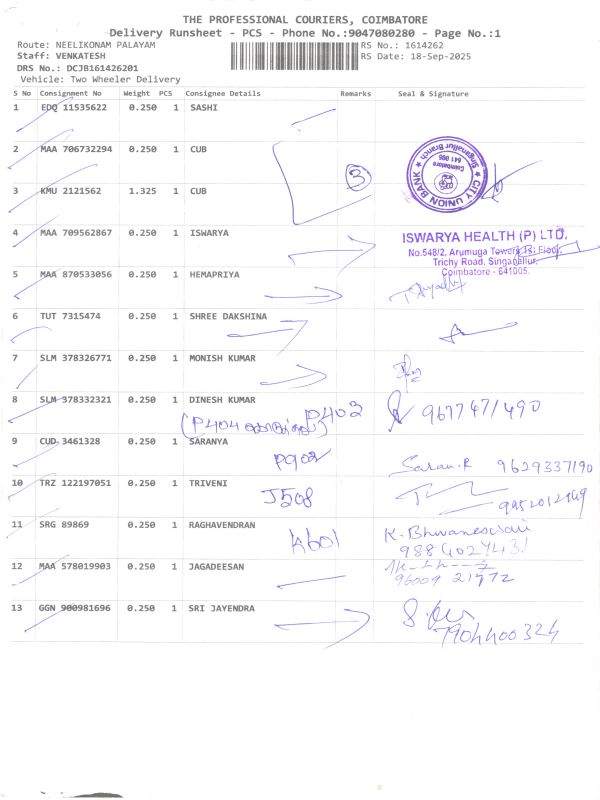 THE PROFESSIONAL COURIERS, COIMBATORE
Delivery Runsheet - PCS - Phone No.:9047080280 - Page No.:1
Route: NEELIKONAM PALAYAM
RS No.: 1614262
Staff: VENKATESH
RS Date: 18-Sep-2025
DRS No.: DCJB161426201
Vehicle: Two Wheeler Delivery
S No Consignment No Weight PCS Consignee Details Remarks Seal & Signature
1 EDQ 11535622 0.250 1 SASHI
2 MAA 706732294 0.250 1 CUB
3
CITY UNION BANK
Singanallur Branch
Coimbatore
641 005
3 KMU 2121562 1.325 1 CUB
4 MAA 709562867 0.250 1 ISWARYA
ISWARYA HEALTH (P) LTD.
No.548/2, Arumuga Towers, Floor,
Trichy Road, Singanallur,
Coimbatore - 641005.
5 MAA 870533056 0.250 1 HEMAPRIYA
6 TUT 7315474 0.250 1 SHREE DAKSHINA
7 SLM 378326771 0.250 1 MONISH KUMAR
8 SLM 378332321 0.250 1 DINESH KUMAR
P402
(P404
9677471490
9 CUD 3461328 0.250 1 SARANYA
P902
Saran.R 9629337190
10 TRZ 122197051 0.250 1 TRIVENI
J508
11 SRG 89869 0.250 1 RAGHAVENDRAN
A601
K. Bhuvaneswari
12 MAA 578019903 0.250 1 JAGADEESAN
96009 21772
13 GGN 900981696 0.250 1 SRI JAYENDRA
7904400324